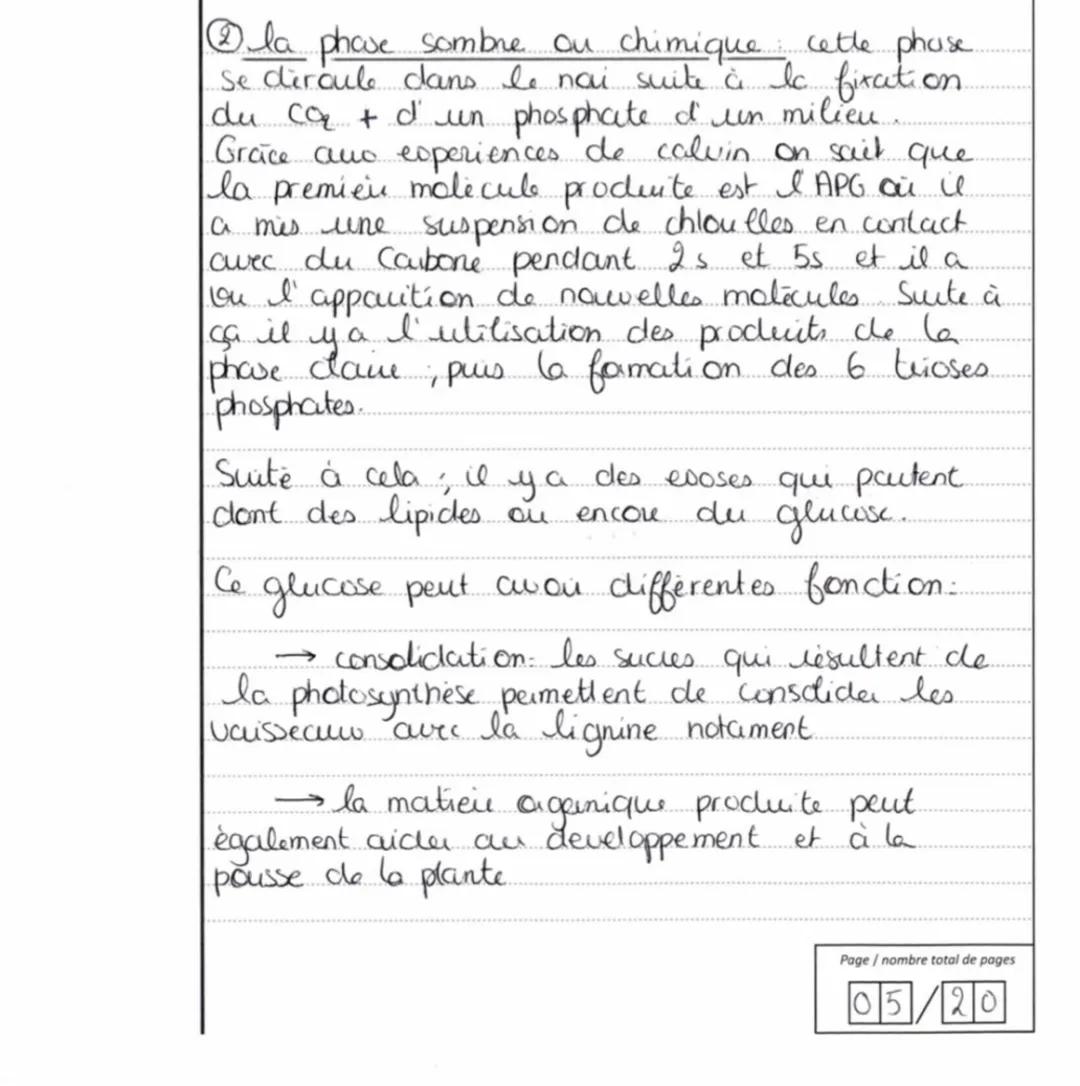 ② la phase sombre ou chimique : cette phase
se déroule dans le noir suite à la fixation
du CO2 + d'un phosphate d'un milieu.
Grâce aux experiences de calvin on sait que
la premiere molécule produite est l'APG où il
a mis une suspension de chlorelles en contact
avec du Carbone pendant 2s et 5s et il a
vu l'apparition de nouvelles molécules. Suite à
ça il y a l'utilisation des produits de la
phase claire, puis la formation des 6 trioses
phosphates.
Suite à cela, il y a des exoses qui partent
dont des lipides ou encore du glucose.
Ce glucose peut avoir différentes fonction :
→ consolidation : les sucres qui résultent de
la photosynthèse permettent de consolider les
vaisseaux avec la lignine notament
→ la matiere organique produite peut
également aider au developpement et à la
pousse de la plante
Page / nombre total de pages
05/20